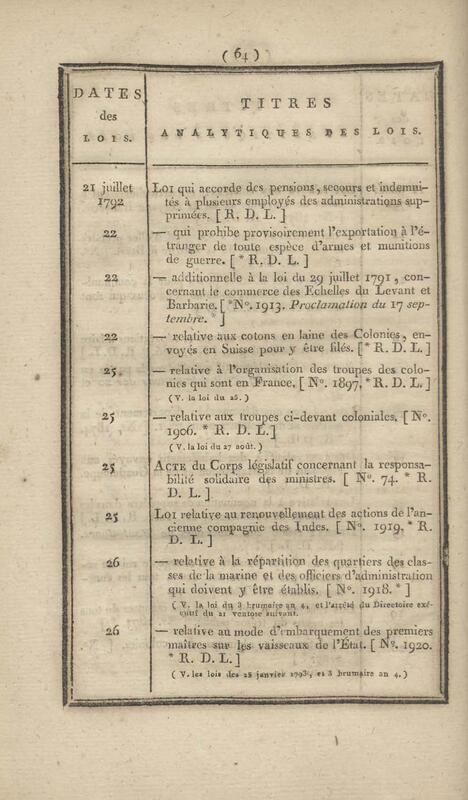 ( 64 )
DATES
des
LOIS.
TITRES
ANALYTIQUES DES LOIS.
21 juillet
1792
LOI qui accorde des pensions, secours et indemni-
tés à plusieurs employés des administrations sup-
primées. [ R. D. L. ]
22
— qui prohibe provisoirement l'exportation à l'é-
tranger de toute espèce d'armes et munitions
de guerre. [ * R. D. L. ]
22
— additionnelle à la loi du 29 juillet 1791, con-
cernant le commerce des Echelles du Levant et
Barbarie. [ *No. 1913. Proclamation du 17 sep-
tembre. * ]
22
— relative aux cotons en laine des Colonies, en-
voyés en Suisse pour y être filés. [ * R. D. L. ]
25
— relative à l'organisation des troupes des colo-
nies qui sont en France. [ No. 1897. * R. D. L. ]
( V. la loi du 26. )
25
— relative aux troupes ci-devant coloniales. [ No.
1906. * R. D. L. ]
( V. la loi du 27 août. )
25
ACTE du Corps législatif concernant la responsa-
bilité solidaire des ministres. [ No. 74. * R.
D. L. ]
25
LOI relative au renouvellement des actions de l'an-
cienne compagnie des Indes. [ No. 1919. * R.
D. L. ]
26
— relative à la répartition des quartiers des clas-
ses de la marine et des officiers d'administration
qui doivent y être établis. [ No. 1918. * ]
( V. la loi du 3 brumaire an 4, et l'arrêté du Directoire exé-
cutif du 21 ventose suivant.
26
— relative au mode d'embarquement des premiers
maîtres sur les vaisseaux de l'État. [ No. 1920.
* R. D. L. ]
( V. les lois des 25 janvier 1793, et 3 brumaire an 4. )